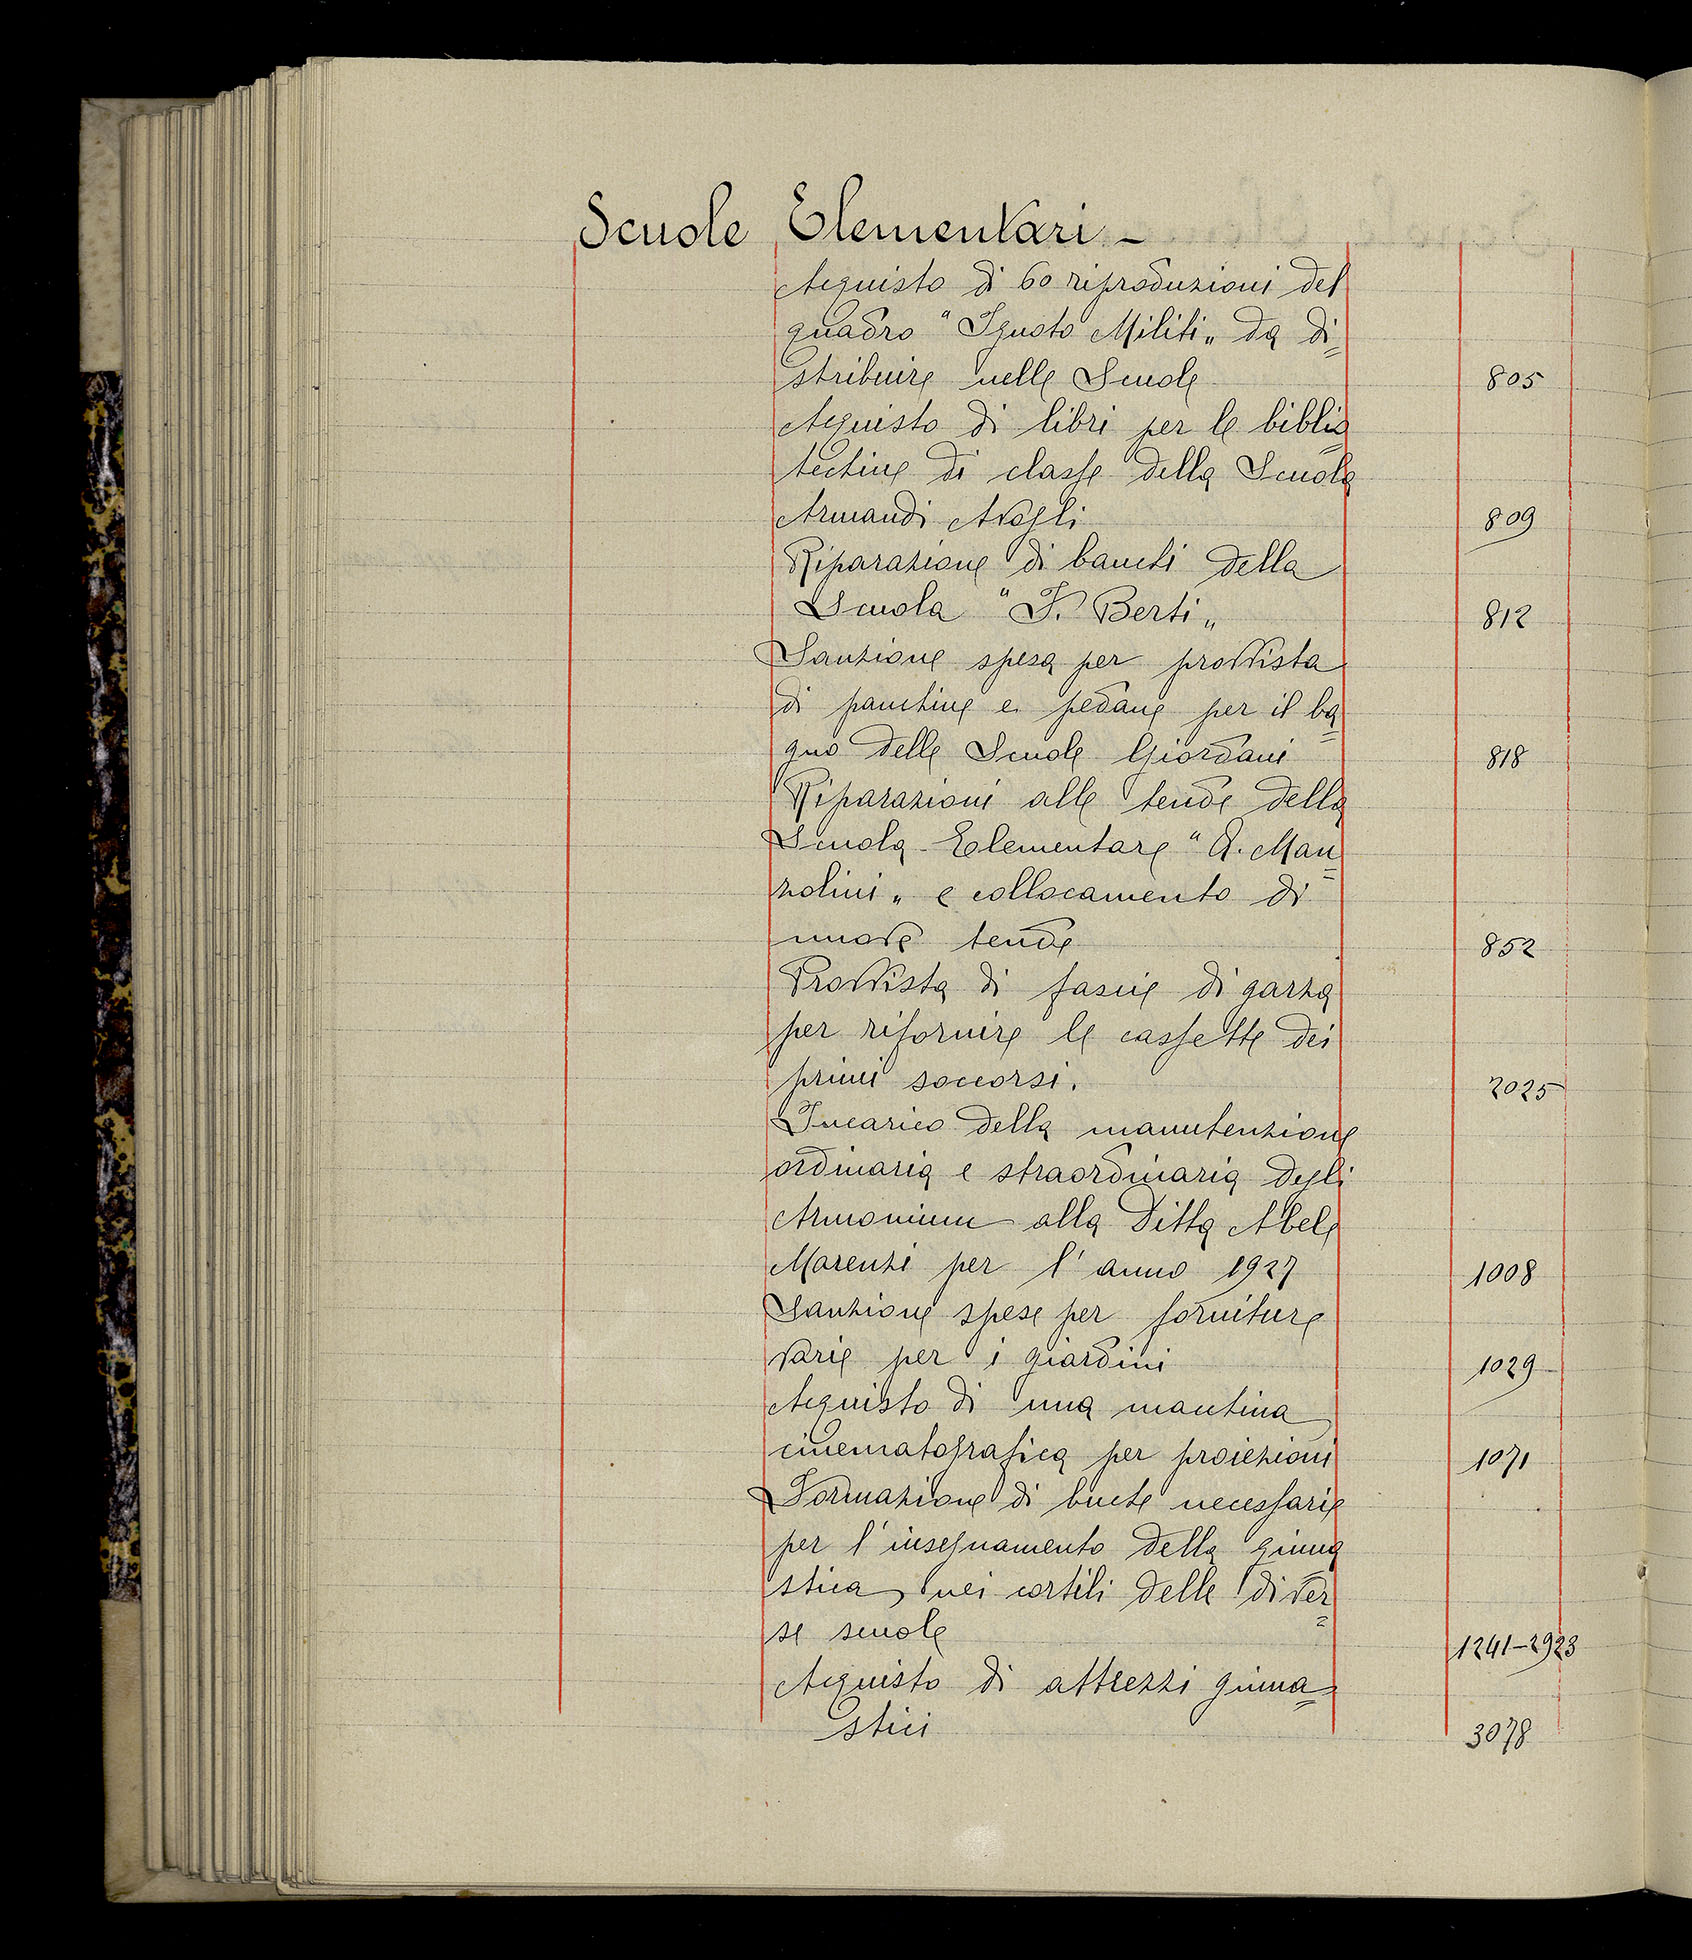 Scuole Elementari -
Acquisto di 60 riproduzioni del
quadro "Ignoto Militi„ da di=
stribuire nelle Scuole 805
Acquisto di libri per le biblio=
techine di classe della Scuola
Armandi Avogli 809
Riparazione di banchi della
Scuola "F. Berti„ 812
Sanzione spesa per provvista
di panchine e pedane per il ba=
gno delle Scuole Giordani 818
Riparazioni alle tende della
Scuola Elementare "A. Man=
zolini„ e collocamento di
nuove tende 852
Provvista di fascie di garza
per rifornire le cassette dei
primi soccorsi. 2025
Incarico della manutenzione
ordinaria e straordinaria degli
Armonium alla Ditta Abele
Marenzi per l'anno 1927 1008
Sanzione spese per forniture
varie per i giardini 1029
Acquisto di una macchina
cinematografica per proiezioni 1071
Formazione di buche necessarie
per l'insegnamento della ginna=
stica, nei cortili delle diver=
se scuole 1241-2923
Acquisto di attrezzi ginna=
stici 3078